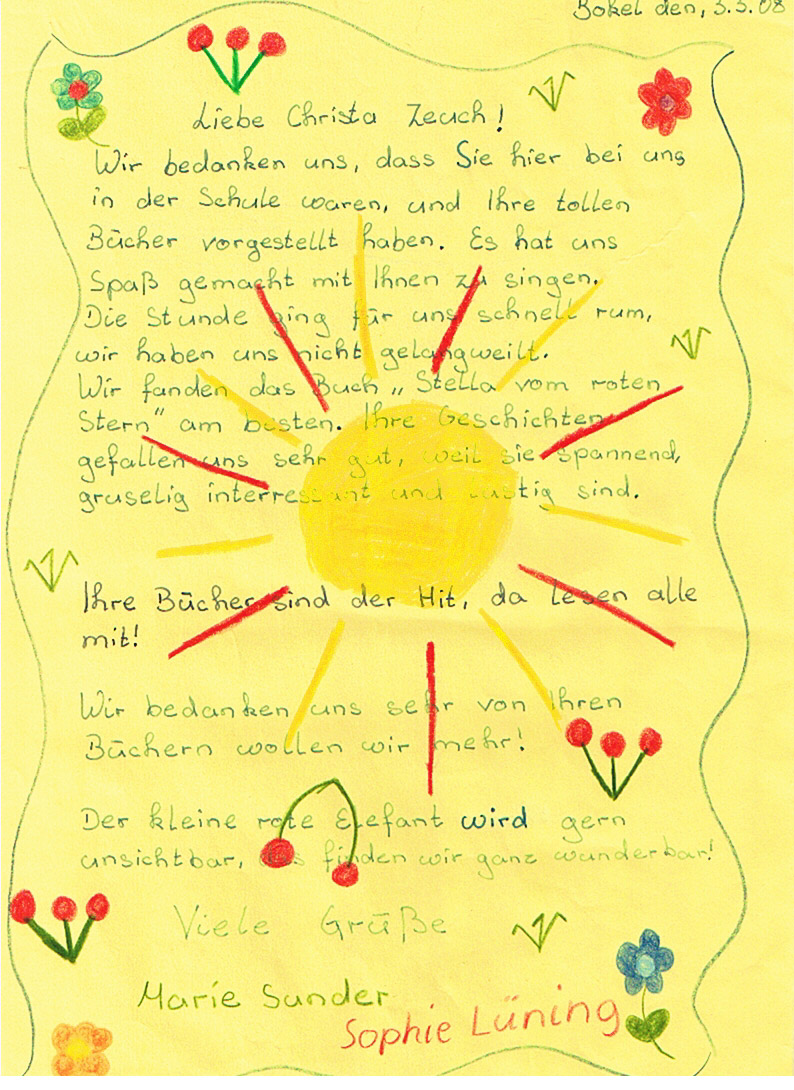 Bokel den, 3.3.08
Liebe Christa Zeuch!
Wir bedanken uns, dass Sie hier bei uns
in der Schule waren, und Ihre tollen
Bücher vorgestellt haben. Es hat uns
Spaß gemacht mit Ihnen zu singen.
Die Stunde ging für uns schnell rum,
wir haben uns nicht gelangweilt.
Wir fanden das Buch „Stella vom roten
Stern“ am besten. Ihre Geschichten
gefallen uns sehr gut, weil sie spannend,
gruselig interressant und lustig sind.
Ihre Bücher sind der Hit, da lesen alle
mit!
Wir bedanken uns sehr von Ihren
Büchern wollen wir mehr!
Der kleine rote Elefant wird gern
unsichtbar, das finden wir ganz wunderbar!
Viele Grüße
Marie Sunder
Sophie Lüning